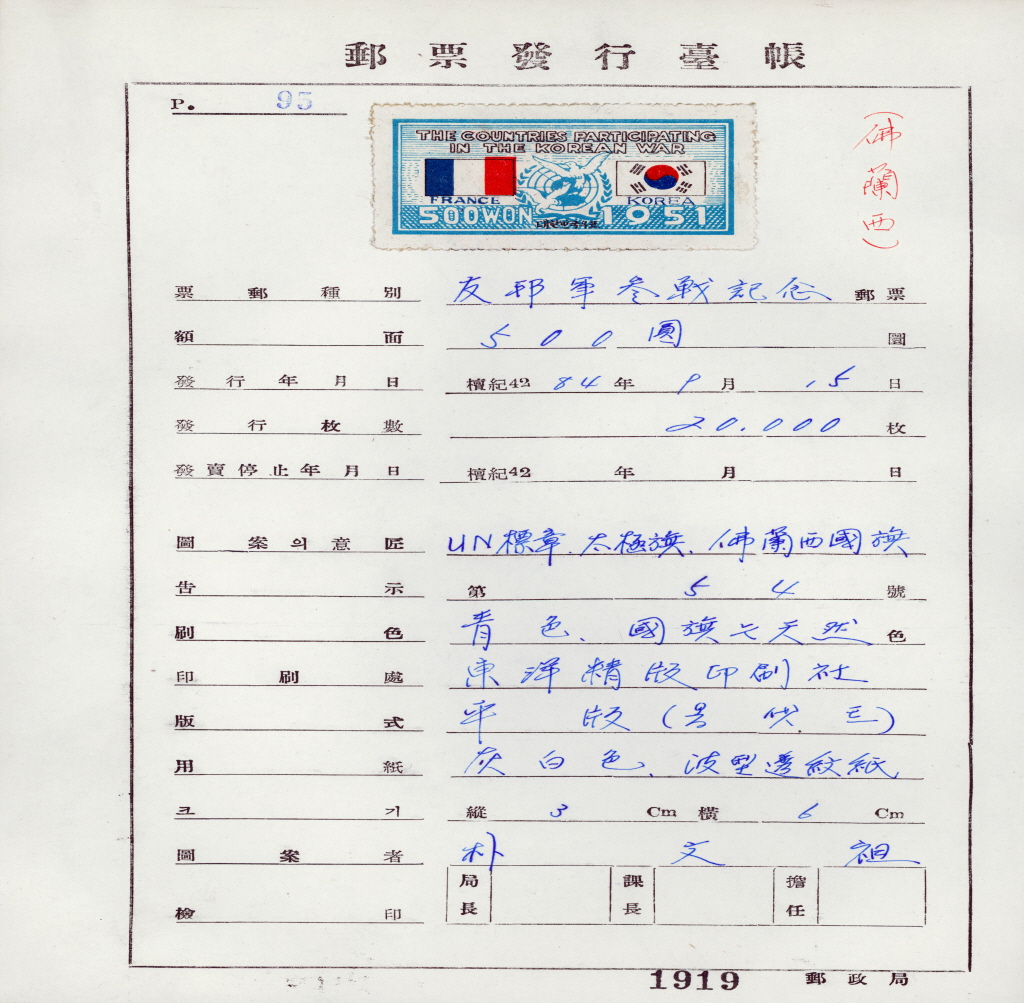 郵票發行臺帳
P. 95
THE COUNTRIES PARTICIPATING
IN THE KOREAN WAR
FRANCE KOREA
500WON 1951
(佛蘭西)
票郵種別 友邦軍參戰記念 郵票
額面 500圓 圜
發行年月日 檀紀42 84年 9月 15日
發行枚數 20.000 枚
發賣停止年月日 檀紀42 年 月 日
圖案의意匠 UN標章、太極旗、佛蘭西國旗
告示 第 54 號
刷色 靑色、國旗는天然色
印刷處 東洋精版印刷社
版式 平版
用紙 灰白色、波型透紋紙
크기 縱 3 Cm 橫 6 Cm
圖案者 朴文祖
檢印 局長 課長 擔任
1919 郵政局